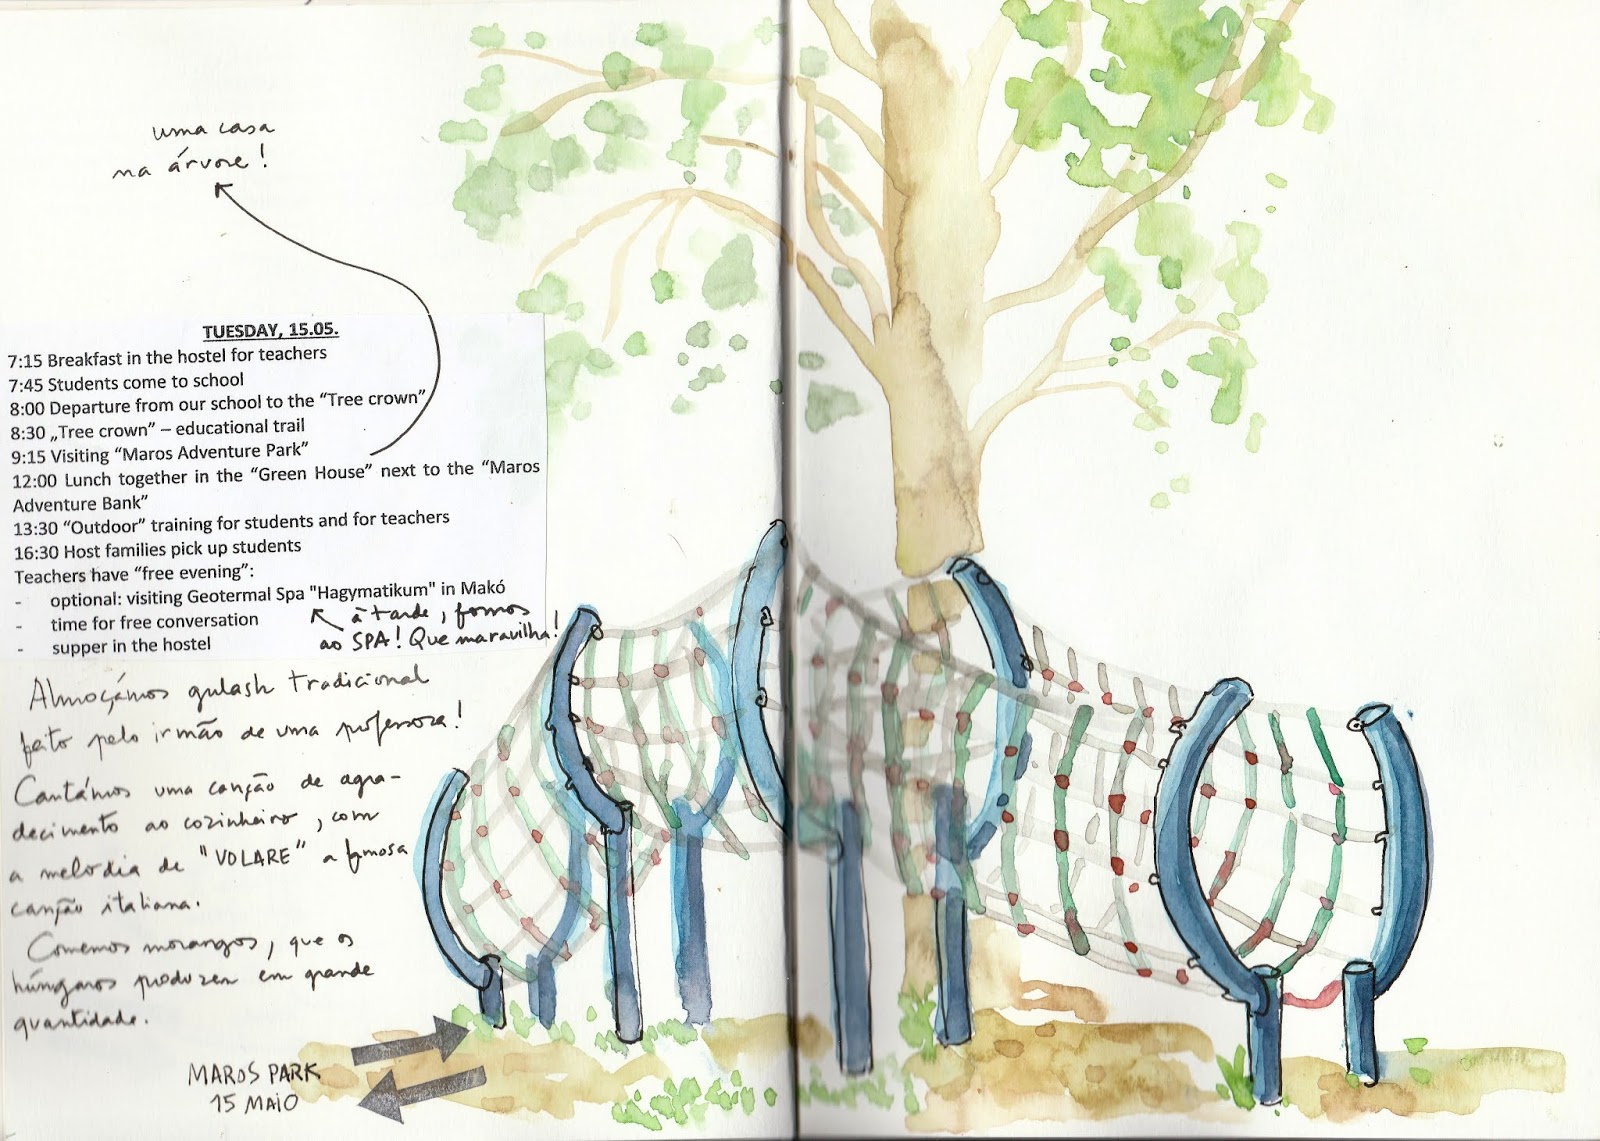 uma casa
na árvore!
TUESDAY, 15.05.
7:15 Breakfast in the hostel for teachers
7:45 Students come to school
8:00 Departure from our school to the “Tree crown”
8:30 „Tree crown” – educational trail
9:15 Visiting “Maros Adventure Park”
12:00 Lunch together in the “Green House” next to the “Maros
Adventure Bank”
13:30 “Outdoor” training for students and for teachers
16:30 Host families pick up students
Teachers have “free evening”:
- optional: visiting Geotermal Spa "Hagymatikum" in Makó
- time for free conversation
- supper in the hostel
à tarde, fomos
ao SPA! Que maravilha!
Almoçámos gulash tradicional
feito pelo irmão de uma professora!
Cantámos uma canção de agra-
decimento ao cozinheiro, com
a melodia de "VOLARE" a famosa
canção italiana.
Comemos morangos, que os
húngaros produzem em grande
quantidade.
MAROS PARK
15 MAIO